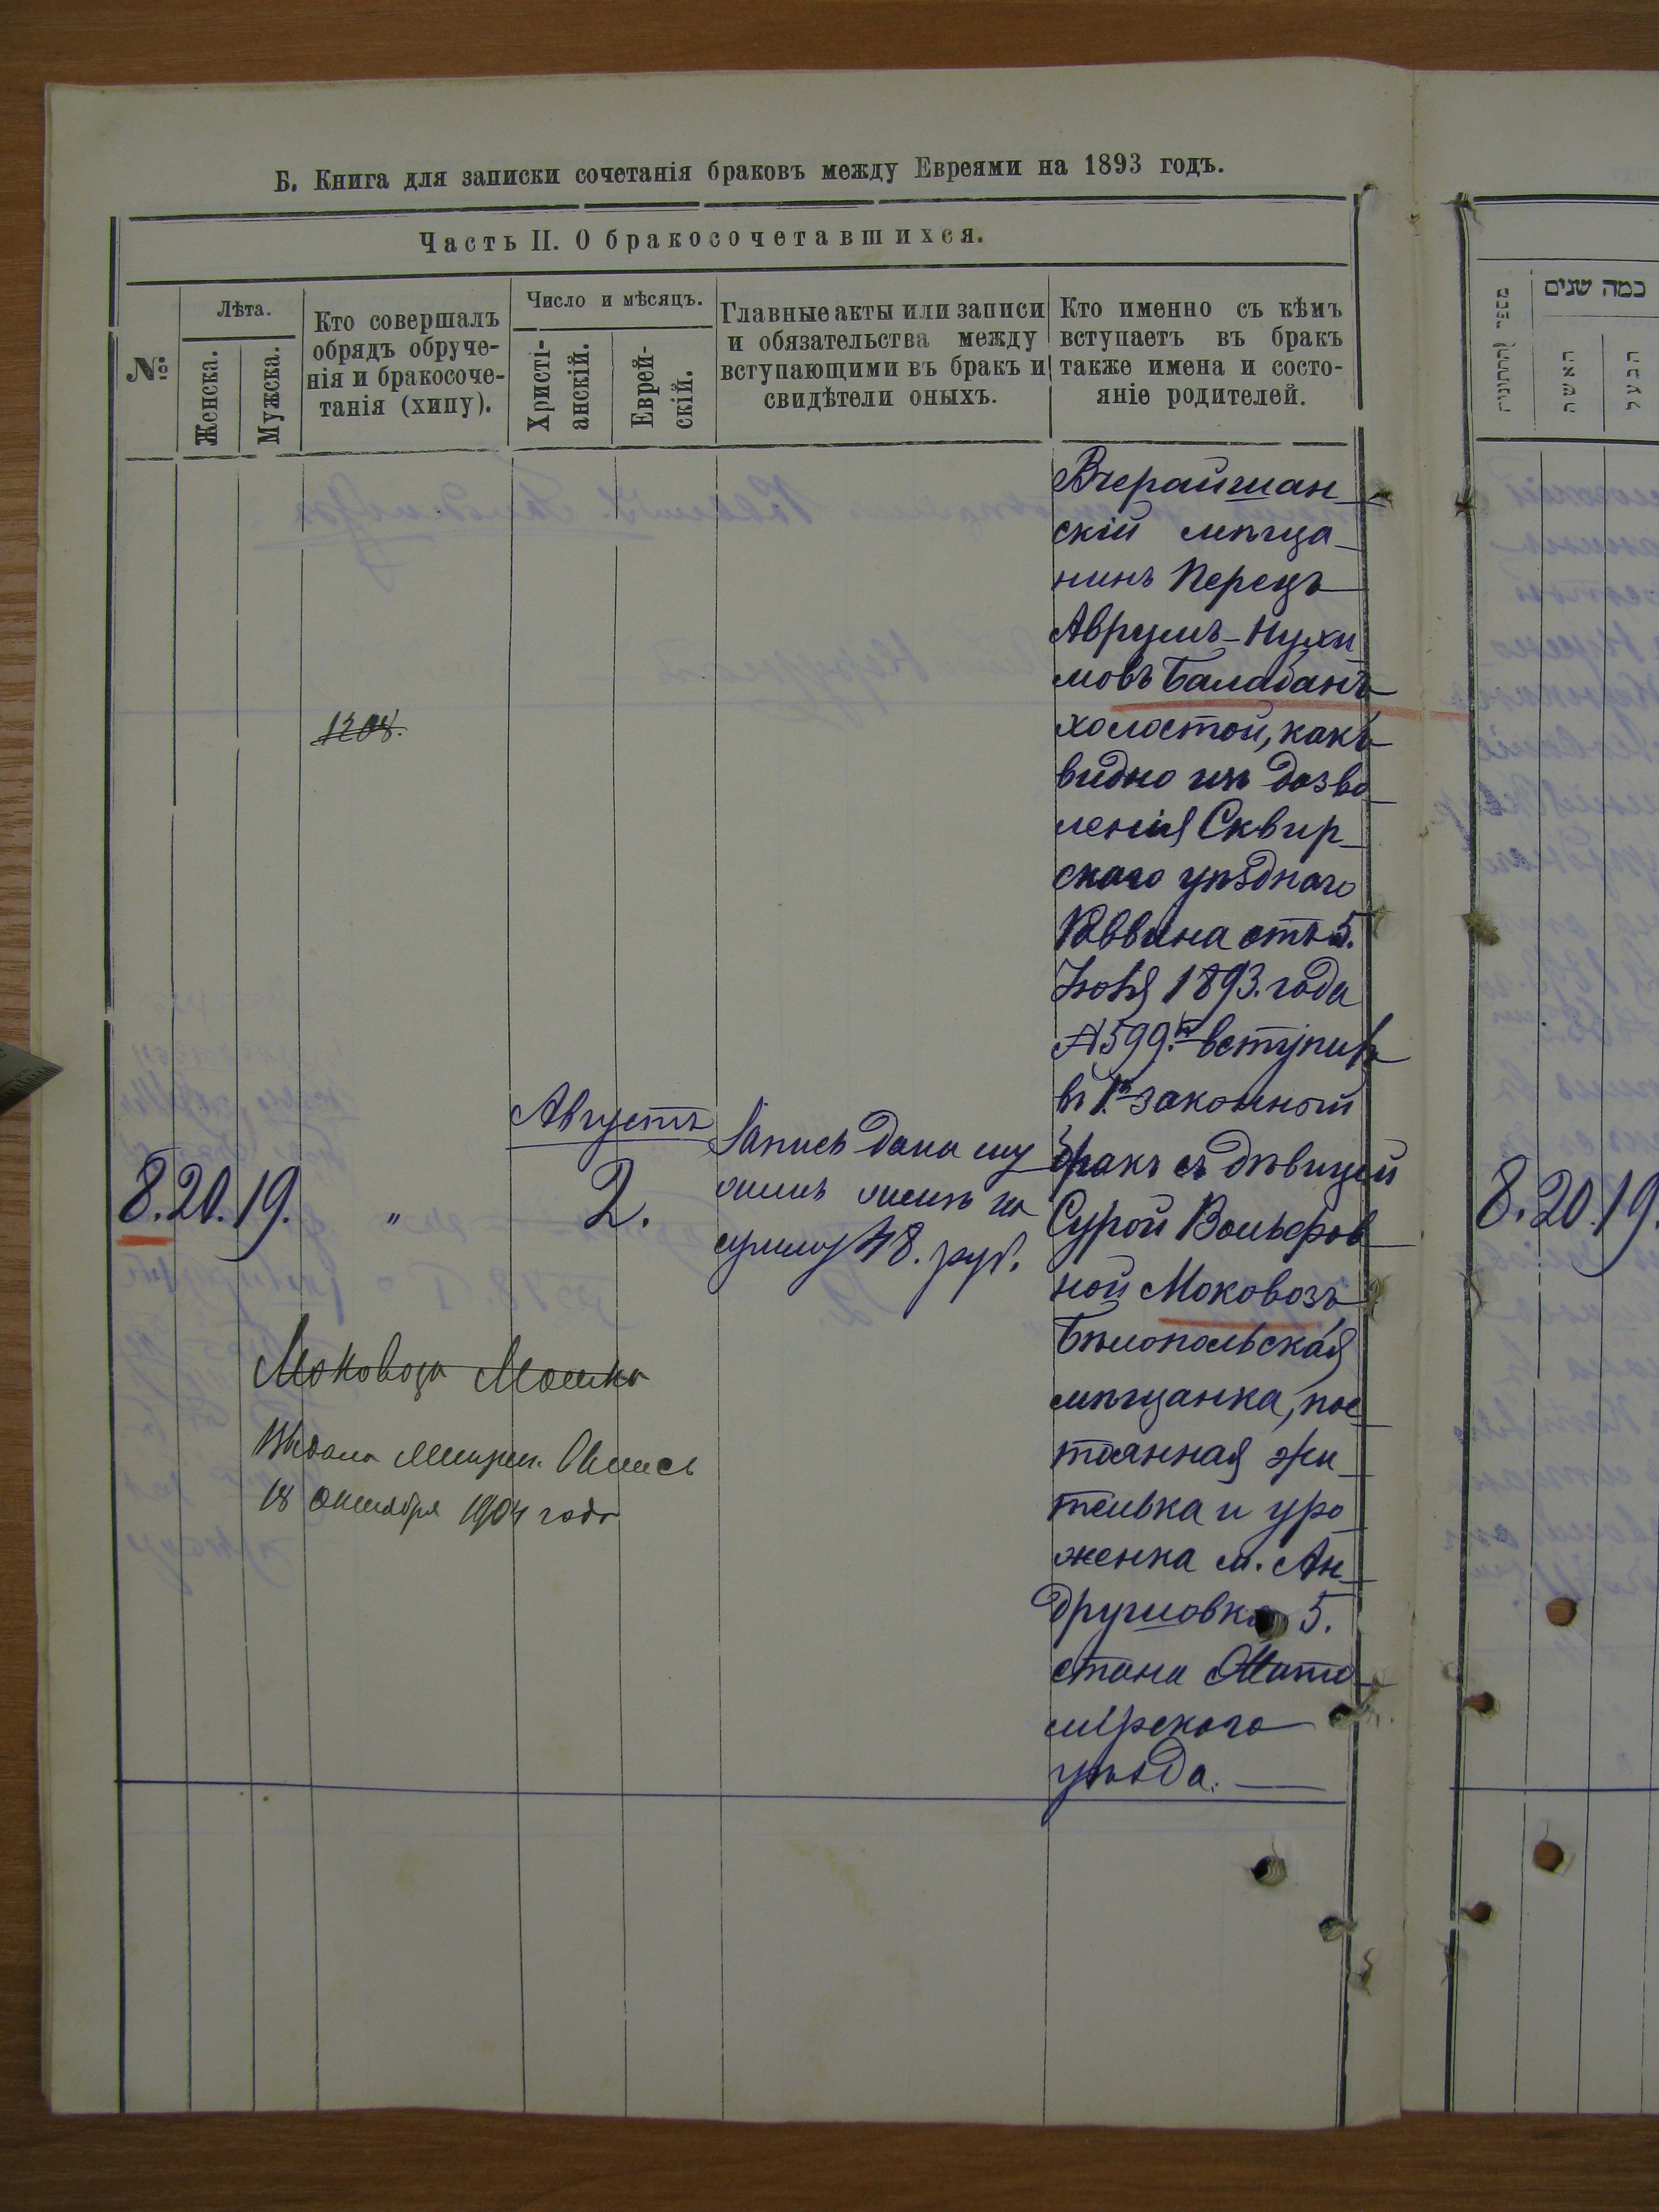 Б. Книга для записки сочетанія браковъ между Евреями на 1893 годъ.
Часть II. О бракосочетавшихся.
№
Лѣта.
Женска.
Мужска.
Кто совершалъ
обрядъ обруче-
нія и бракосоче-
танія (хипу).
Число и мѣсяцъ.
Христі-
анскій.
Еврей-
скій.
Главные акты или записи
и обязательства между
вступающими въ бракъ и
свидѣтели оныхъ.
Кто именно съ кѣмъ
вступаетъ въ бракъ
также имена и состо-
яніе родителей.
כמה שנים
האשה
הבעל
Вчерайшан
скій мѣща
нинъ Перецъ
Аврумъ-Нухи
мовъ Балабанъ
холостой, какъ
видно изъ дозво
ленія Сквир
скаго уѣзднаго
Раввина отъ 5.
1893. года
№ 599. вступилъ
въ 1й законный
бракъ съ дѣвицей
Сурой Вольфов
ной Моковозъ
Бѣлопольская
мѣщанка, пос
тоянная жи
телька и уро
женка м. Ан
друшовка 5.
стана Жито
мірскаго
уѣзда.
1204.
Августъ
8. 20. 19. " 2.
Запись дана му
жемъ женѣ на
сумму 48. руб.
Моковоза Мошко
Выдана Метрич. Выпись
18 октября 1904 года
8. 20. 19.